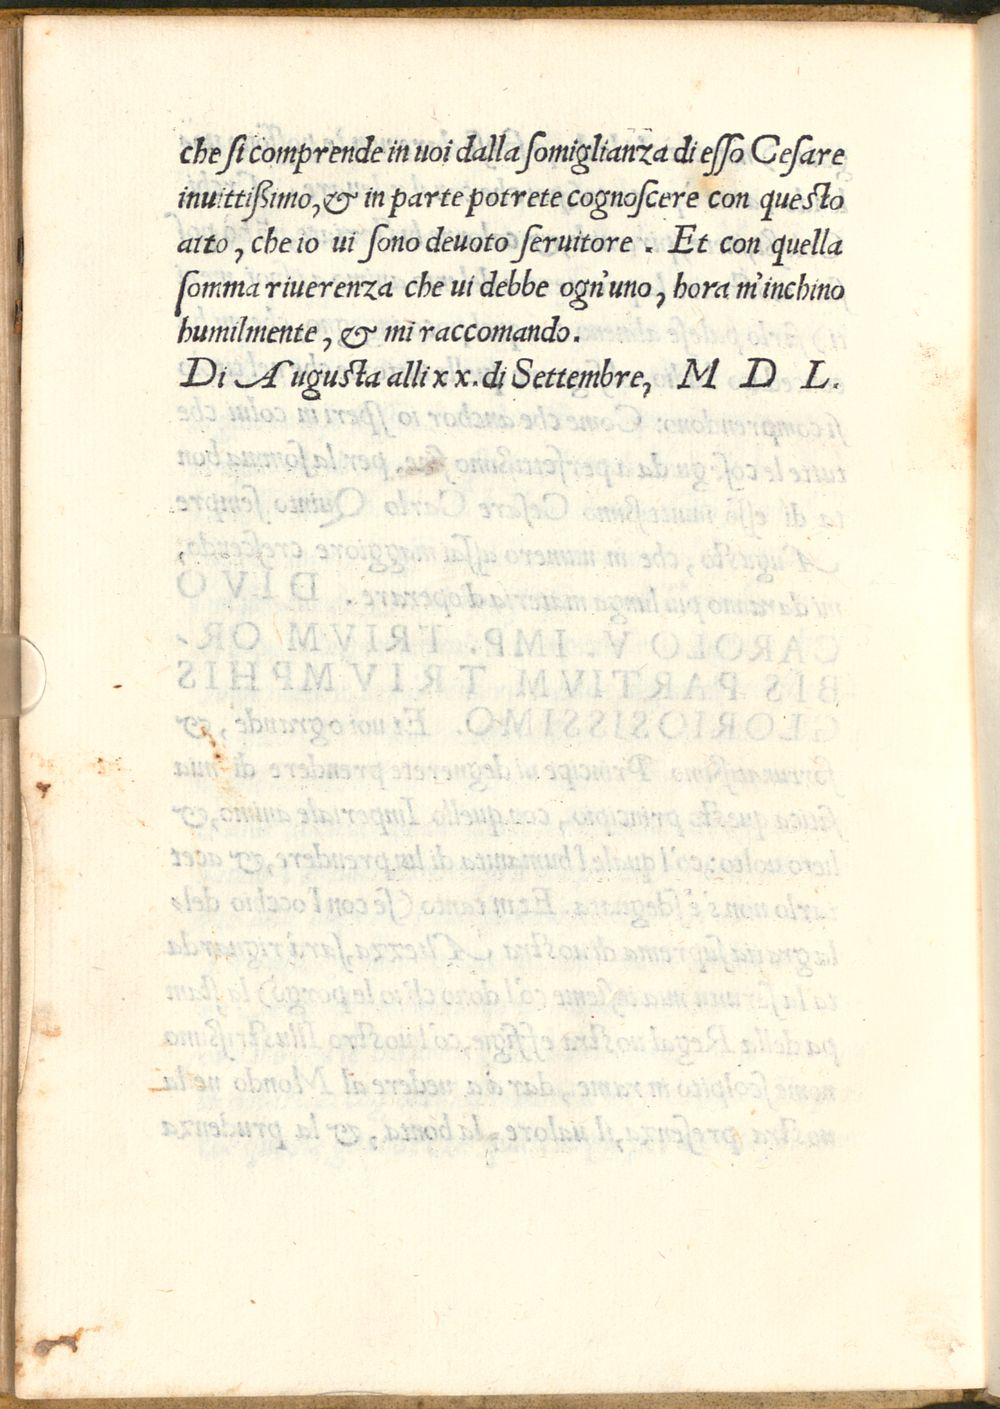 che ſi comprende in uoi dalla ſomiglianza di eſſo Ceſare
inuittiſsimo, & in parte potrete cognoſcere con queſto
atto, che io ui ſono deuoto ſeruitore. Et con quella
ſomma riuerenza che ui debbe ogn'uno, hora m'inchino
humilmente, & mi raccomando.
Di Auguſta alli xx. di Settembre, M D L.